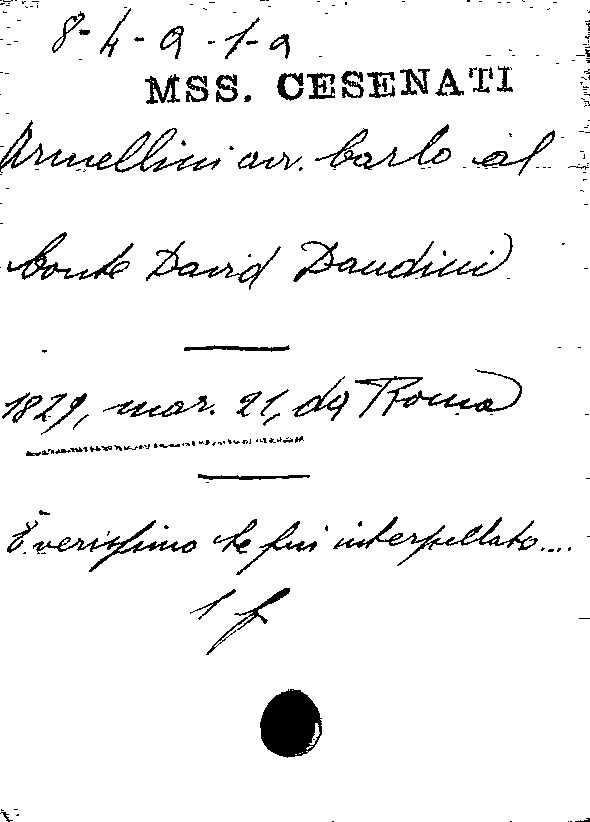 8-4-a-1-a
MSS. CESENATI
Armellini avv. Carlo al
Conte David Dandini
1829, mar. 21, da Roma
È verissimo che fui interpellato....
1 f